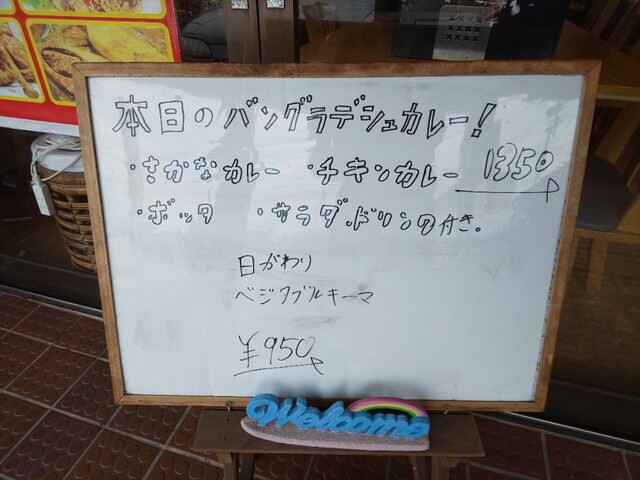 本日のバングラデシュカレー!
・さかなカレー ・チキンカレー 1350
・ボッタ ・サラダ.ドリンク付き。
日がわり
ベジタブルキーマ
¥950
Welcome